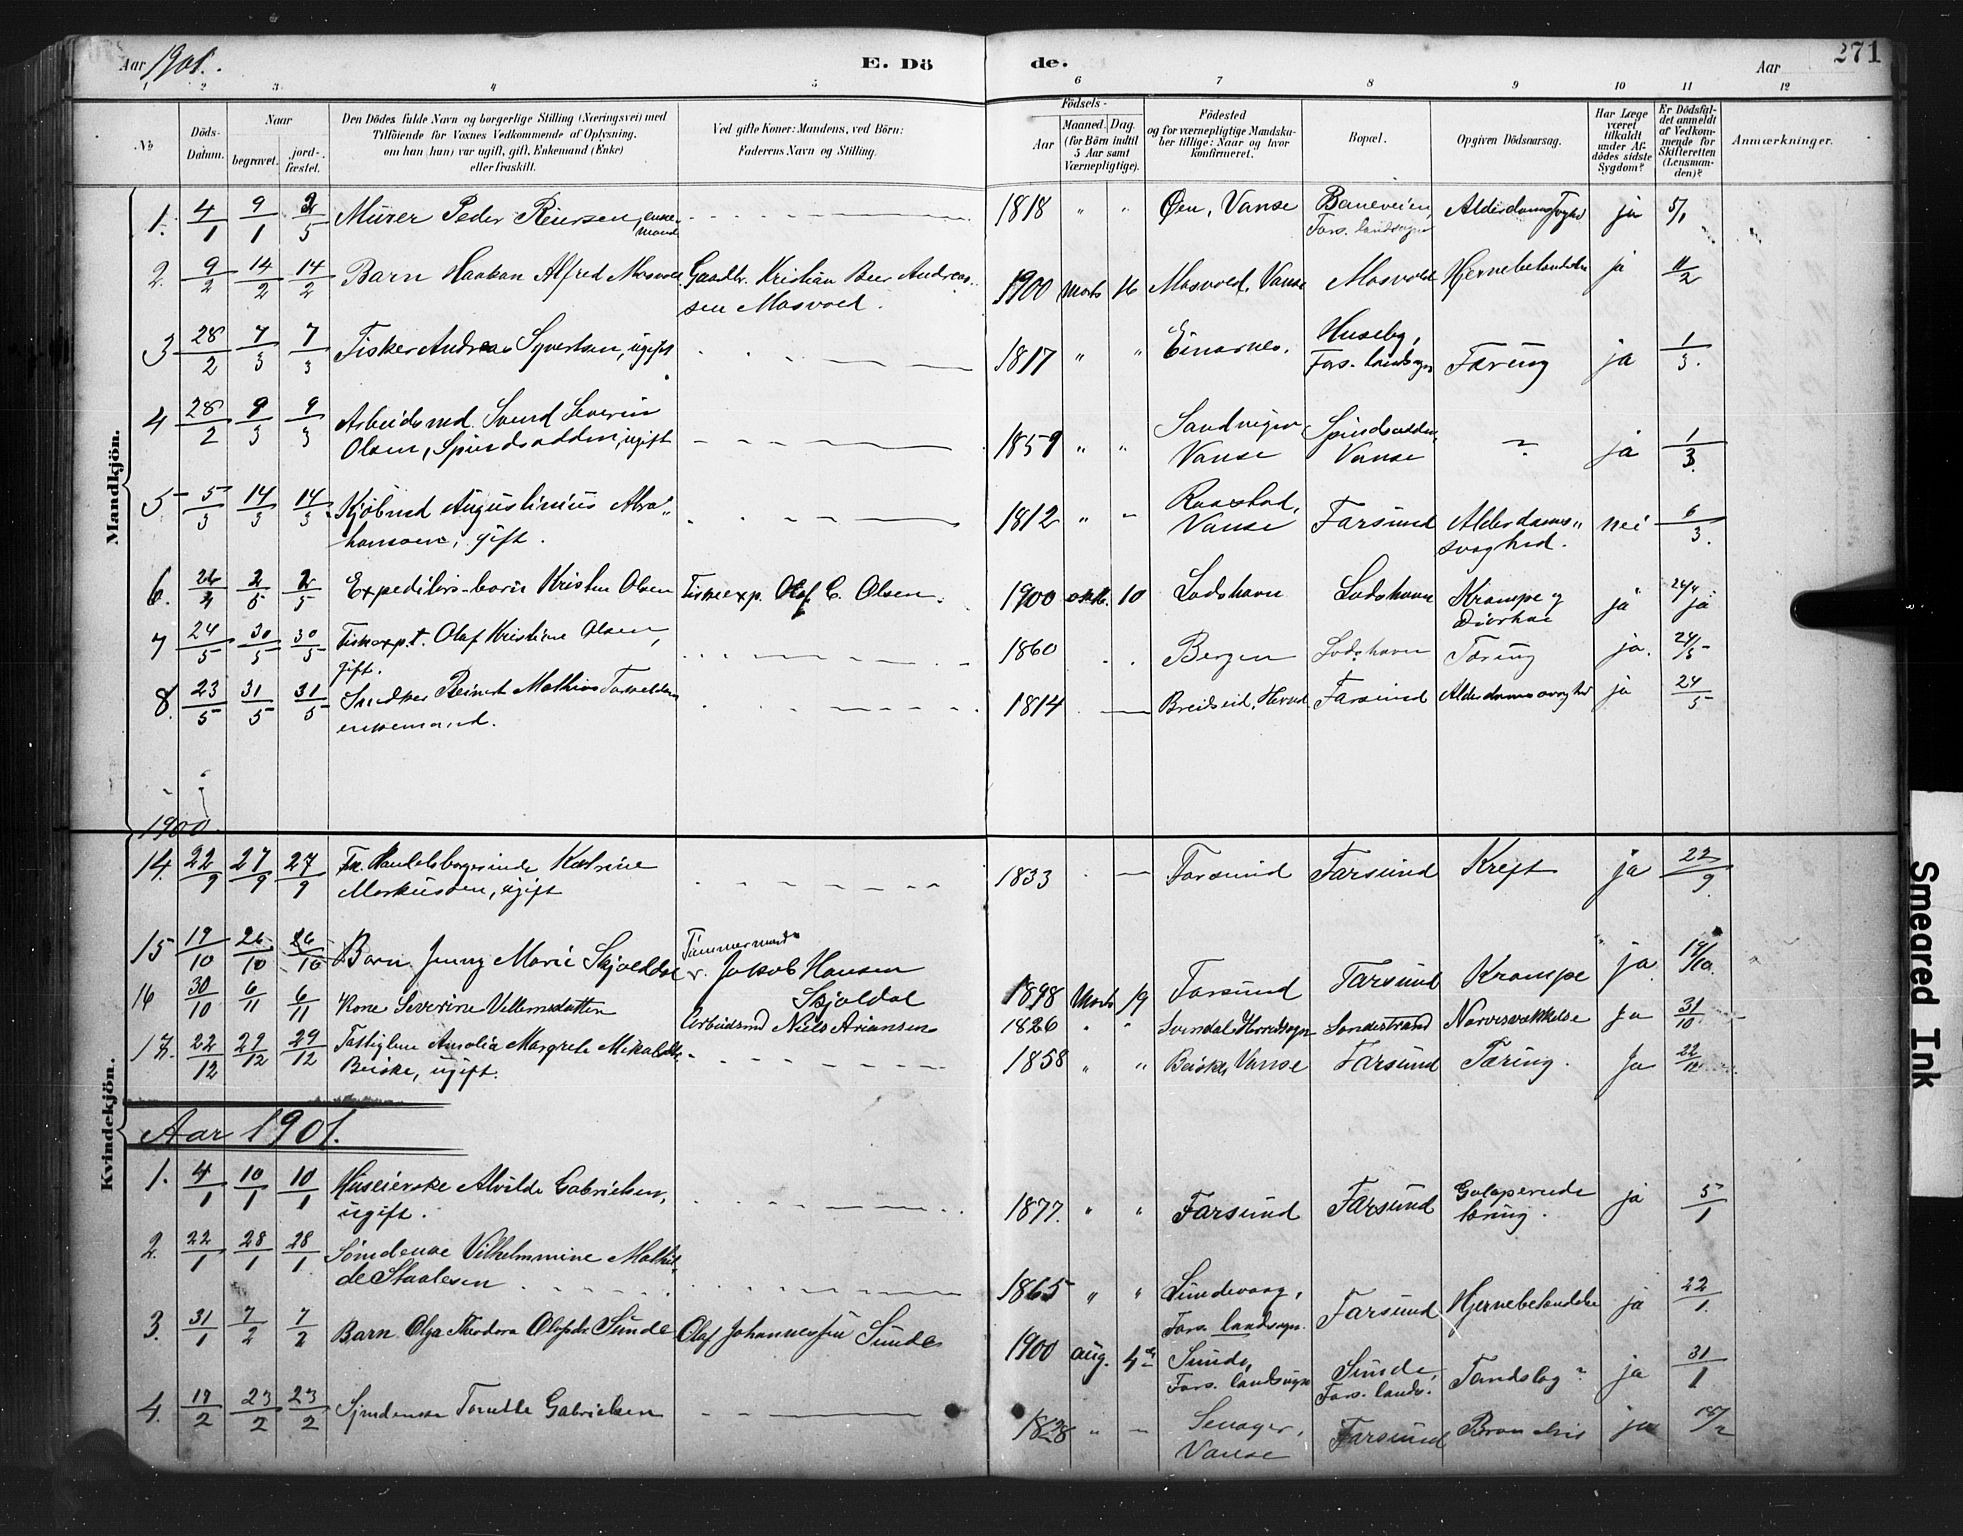 Aar 1901.
E. Dö
de.
Aar
271
1 2 3 4 5 6 7 8 9 10 11 12
No
Döds-
Datum.
Naar
begravet.
jord-
fæstet.
Den Dödes fulde Navn og borgerlige Stilling (Næringsvei) med
Tilföiende for Voxnes Vedkommende af Oplysning,
om han (hun) var ugift, gift, Enkemand (Enke)
eller fraskilt.
Ved gifte Koner: Mandens, ved Börn:
Faderens Navn og Stilling.
Födsels-
Aar
Maaned. Dag.
(for Börn indtil
5 Aar samt
Værnepligtige).
Födested
og for værnepligtige Mandska-
ber tillige: Naar og hvor
konfirmeret.
Bopæl.
Opgiven Dödsaarsag.
Har Læge
været
tilkaldt
under Af-
dödes sidste
Sygdom?
Er Dödsfal-
det anmeldt
af Vedkom-
mende for
Skifteretten
(Lensman-
den)?
Anmærkninger.
Mandkjön.
1. 4/1 9/1 2/5 Murer Peder Reiersen, enke-
mand
1818 " " Øen, Vanse Baneveien, Fars. landsogn ja 5/1
2. 9/2 14/2 14/2 Barn Haakon Alfred Mosvold Gaardbr. Kristian Beer Andreas-
sen Mosvold.
1900 Marts 16 Mosvold, Vanse Mosvold Hjernebetændelse ja 11/2
3 28/2 7/3 7/3 Fisker Andreas Syvertsen, ugift
1817 " " Einarnes. Huseby, Fars. landsogn Tæring ja 1/3.
4 28/2 9/3 9/3 Arbeidsmd. Svend Severin
Olsen, Spindsodden, ugift
1859 " " Sandvigen Vanse Spindsodden, Vanse ? ja 1/3.
5 5/3 14/3 14/3 Kjöbmd Augustinius Abra"
hamsen, gift.
1812 " " Vanse Farsund Alderdoms"
svaghed. nei 6/3.
6. 2/5 2/5 Expeditörs-barn Kristen Olsen Fiskeexp. Olaf C. Olsen.
1900 oktb. 10 Lodshavn Lodshavn Krampe og ja ja
7 24/5 30/5 30/5 Fiskexpt. Olaf Kristian Olsen,
gift.
1860 Bergen Lodshavn Tæring ja. 24/5
8. 23/5 31/5 31/5 Snedker Reinert Mathias
enkemand.
1814 Breidseid, Farsund Alderdomssvaghed ja 24/5
1900.
Kvindekjön.
14. 22/9 27/9 27/9 Fr. Handelsborgerinde Katrine
Markussen, ugift
1833 Farsund Farsund Kreft ja 22/9
15 19/10 26/10 26/10 Barn Jenny Marie Skjoldal Tømmermand
Jakob Hansen
Skjoldal
1898 Marts 19 Farsund Farsund Krampe ja 19/10.
16 30/10 6/11 6/11 Kone Severine Villumsdatter Arbeidsmd Niels Ariansen
1826 " " Sondestrand Ja 31/10
17. 22/12 29/12 29/12 Fattiglem Amalia Margrete
Beiske, ugift.
1858 " " Beiske, Vanse Farsund Tæring. Ja 22/12
Aar 1901.
1. 4/1 10/1 10/1 Huseierske Alvilde Gabrielsen,
ugift.
1877. " " Farsund Farsund Galoperende
tæring. ja 5/1
2. 22/1 28/1 28/1 Vilhelmmine Mathil-
de Staalesen
1865 " " Lundevaag, Fars. landsogn. Farsund Hjernebetændelse ja 22/1.
3. 31/1 7/2 7/2 Barn Olga Theodora Olafsdr. Sunde Olaf Johannessen Sunde
1900 aug. 4de Sunde, Fars. landsogn Sunde, Fars. lands. Tandslag? ja 31/1
4. 19/2 23/2 23/2 Tonette Gabrielsen
1828 " Vanse Farsund ja
Smeared Ink